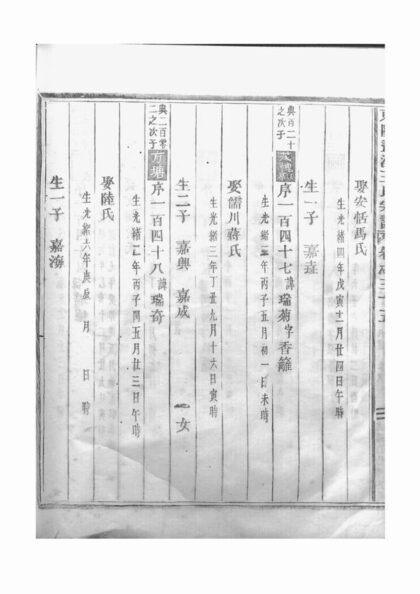 王氏宗譜 三十五
娶安恬馬氏
生光緒四年戊寅十二月廿四日午時
生一子 嘉達
與百二十之次子 序一百四十七諱瑞菊字香籬
生光緒二年丙子五月初一日未時
娶蔣氏
生光緒三年丁丑九月十六日寅時
生二子 嘉興 嘉成 一女
與二百零二之次子 方塘 序一百四十八諱瑞奇
生光緒二年丙子閏五月廿三日午時
娶陸氏
生光緒六年庚辰 月 日 時
生一子 嘉海